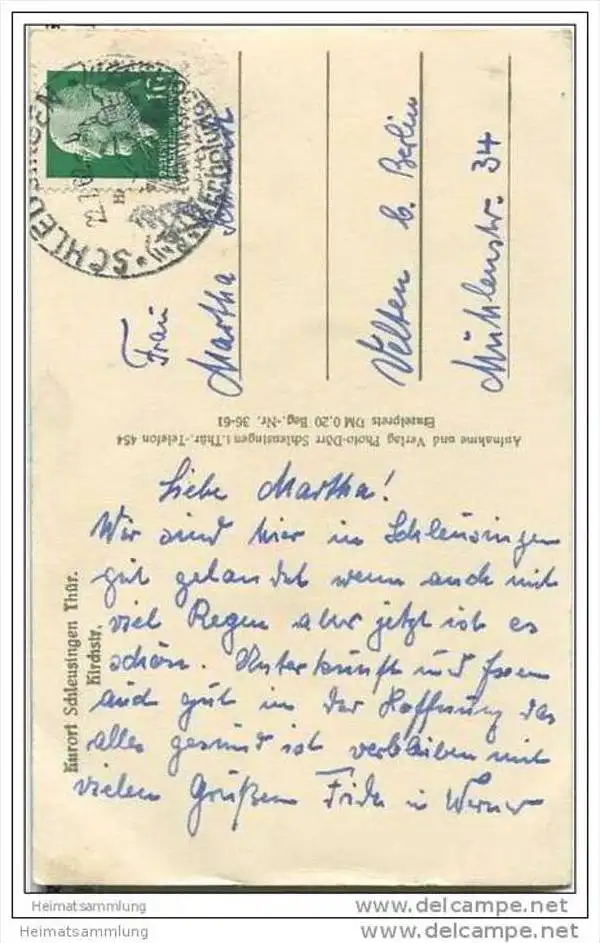 SCHLEUSINGEN
10
Frau
Martha
Velten b. Berlin
Mühlenstr. 34
Aufnahme und Verlag Photo-Dörr Schleusingen i. Thür.-Telefon 454
Einzelpreis DM 0,20 Beg.-Nr. 36-61
Kurort Schleusingen Thür.
Kirchstr.
Liebe Martha!
Wir sind hier in Schleusingen
gut gelandet wenn auch mit
viel Regen aber jetzt ist es
schön. Unterkunft und Essen
auch gut in der Hoffnung das
alles gesund ist verbleiben mit
vielen Grüßen Frida u Werner
Heimatsammlung
www.delcampe.net
Heimatsammlung
www.delcampe.net